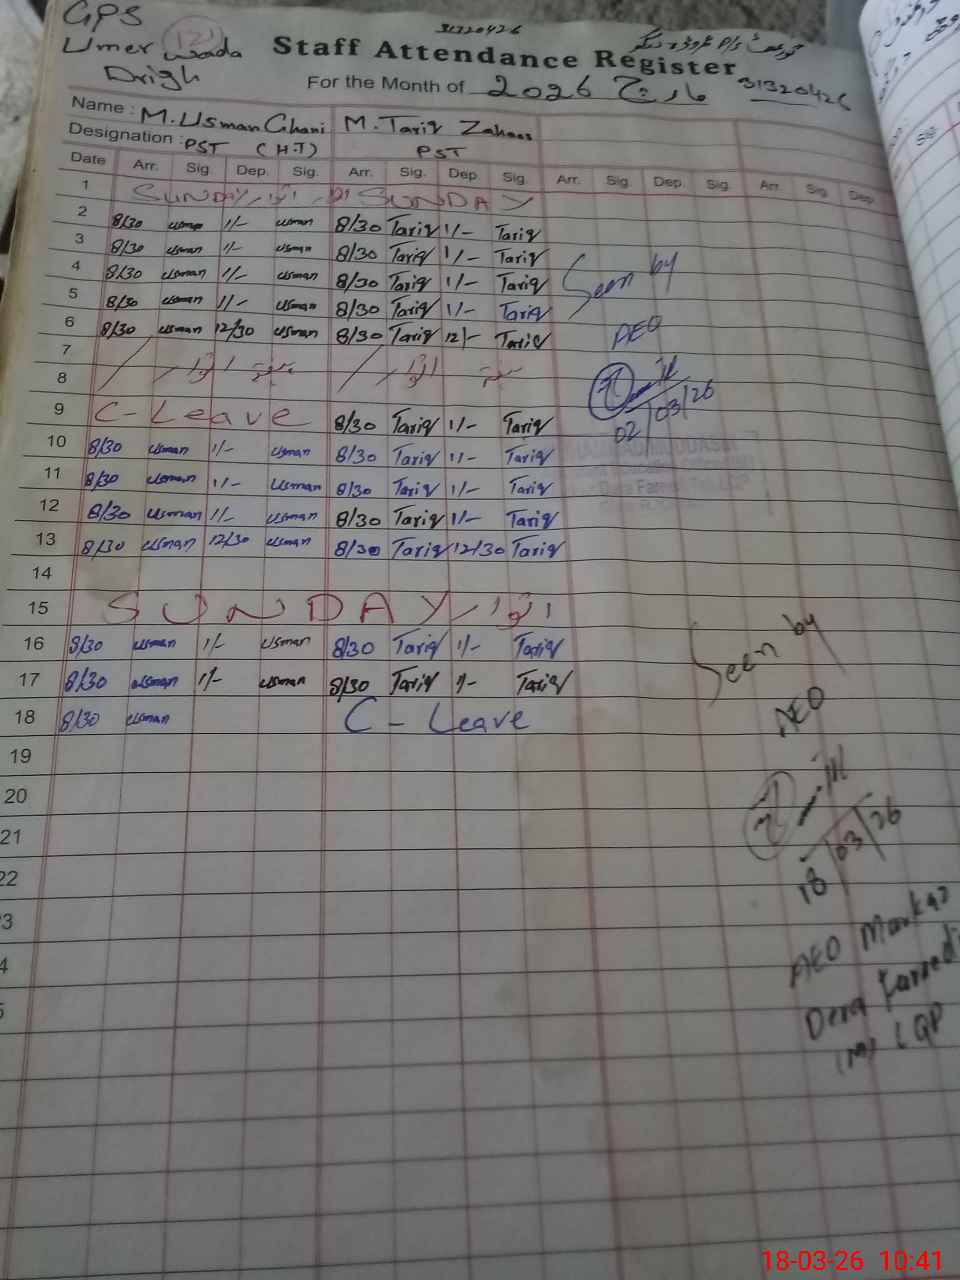 GPS
31320426
Umer wada
Drigh
Staff Attendance Register
For the Month of مارچ 2026
31320426
Name : M. Usman Ghani M. Tariq Zaheer
Designation : PST (H.T) PST
Date Arr. Sig. Dep. Sig. Arr. Sig. Dep. Sig. Arr. Sig. Dep. Sig. Arr. Sig. Dep.
1 SUNDAY اتوار SUNDAY
2 8/30 usman 1/- usman 8/30 Tariq 1/- Tariq
3 8/30 usman 1/- usman 8/30 Tariq 1/- Tariq
4 8/30 usman 1/- usman 8/30 Tariq 1/- Tariq
5 8/30 usman 1/- usman 8/30 Tariq 1/- Tariq
6 8/30 usman 12/30 usman 8/30 Tariq 12/- Tariq
Seen by
AEO
02/03/26
7
8 اتوار ہفتہ اتوار ہفتہ
9 C-Leave 8/30 Tariq 1/- Tariq
10 8/30 usman 1/- usman 8/30 Tariq 1/- Tariq
11 8/30 usman 1/- usman 8/30 Tariq 1/- Tariq
12 8/30 usman 1/- usman 8/30 Tariq 1/- Tariq
13 8/30 usman 12/30 usman 8/30 Tariq 12/30 Tariq
14
15 SUNDAY اتوار
16 8/30 usman 1/- usman 8/30 Tariq 1/- Tariq
17 8/30 usman 1/- usman 8/30 Tariq 1/- Tariq
18 8/30 usman C-Leave
19
20
21
22
Seen by
AEO
18/03/26
AEO Markaz
Dera Fareedi
(M) LQP
18-03-26 10:41